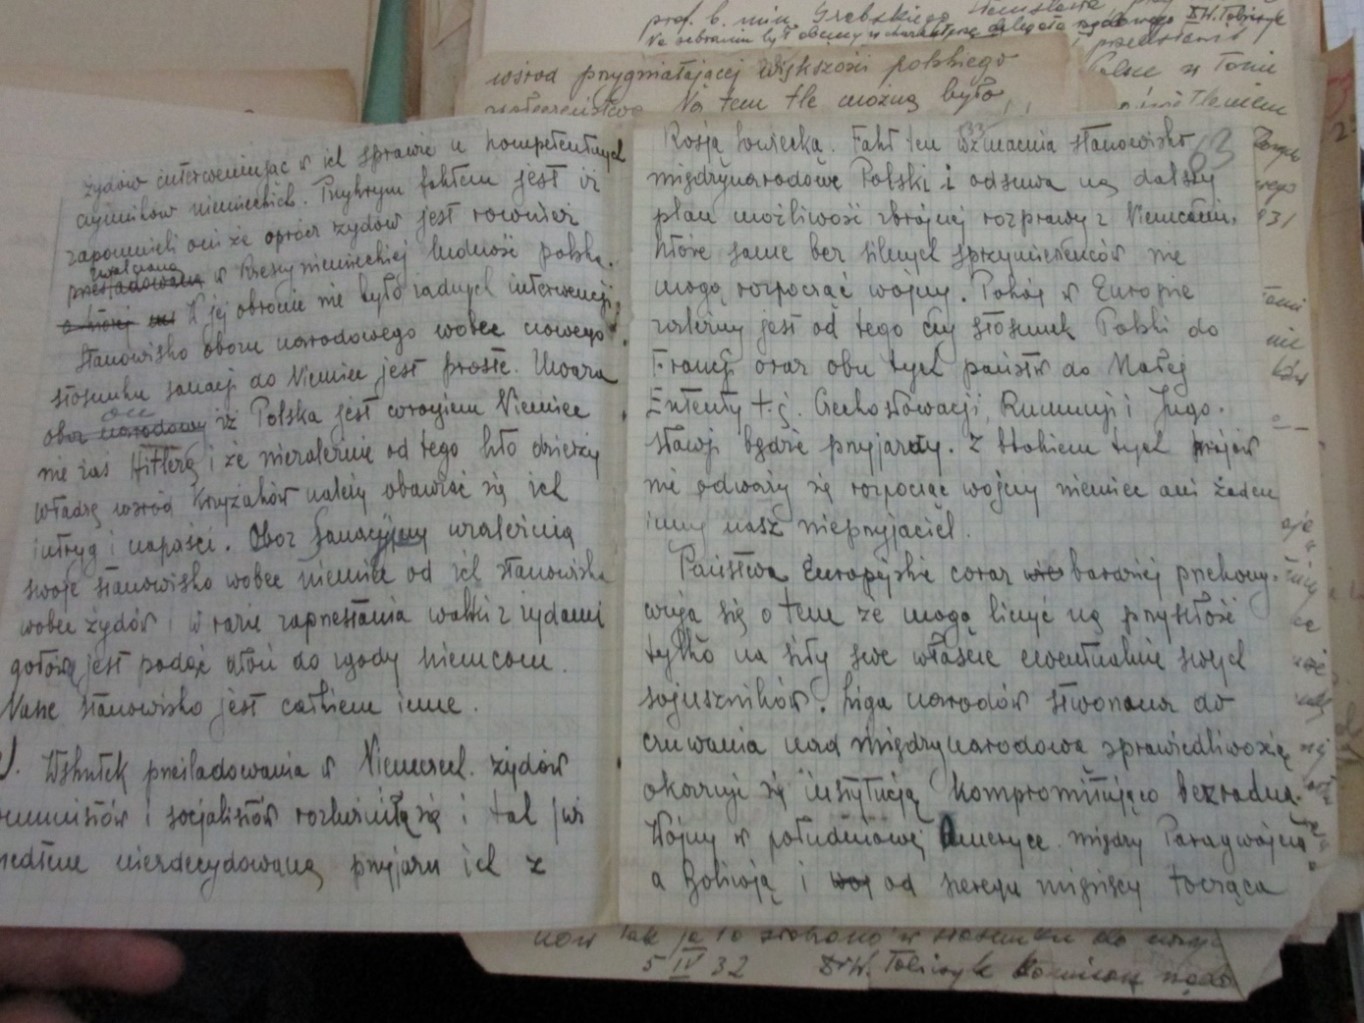 prof. b. min. Grabskiego Stanisława,
Na zebraniu był obecny w charakterze delegata rządowego
wśród przygniatającej większości polskiego
społeczeństwa. Na tem tle można było
żydów interweniując w ich sprawie u kompetentnych
czynników niemieckich. Przykrym faktem jest iż
zapomnieli oni że oprócz żydów jest również
zwalczana
prześladowana w Rzeszy niemieckiej ludność polska.
W jej obronie nie było żadnych interwencji.
Stanowisko obozu narodowego wobec nowego
stosunku sanacji do Niemiec jest proste. Uważa
on
obóz narodowy iż Polska jest wrogiem Niemiec
nie zaś Hitlera i że niezależnie od tego kto dzierży
władzę wśród Krzyżaków należy obawiać się ich
intryg i napaści. Oboz Sanacyjny uzależnia
swoje stanowisko wobec niemiec od ich stanowiska
wobec żydów i w razie zaprzestania walki z żydami
gotów jest podać dłoń do zgody niemcom.
Nasze stanowisko jest całkiem inne.
Wskutek prześladowania w Niemczech żydów
i socjalistów rozluźniła się i tak
niezdecydowana przyjaźń ich z
63
33
Rosją sowiecką. Fakt ten wzmacnia stanowisko
międzynarodowe Polski i odsuwa na dalszy
plan możliwość zbrojnej rozprawy z Niemcami,
które same bez silnych sprzymierzeńców nie
mogą rozpocząć wojny. Pokój w Europie
zależny jest od tego czy stosunek Polski do
Francji oraz obu tych państw do Małej
Ententy t.j. Czechosłowacji, Rumunji i Jugo-
sławji będzie przyjazny. Z blokiem tych krajów
nie odważy się rozpocząć wojny niemiec ani żaden
inny nasz nieprzyjaciel.
Państwa Europejskie coraz bardziej przekony-
wują się o tem że mogą liczyć na przyszłość
tylko na siły swe własne ewentualnie swych
sojuszników. Liga narodów stworzona do
czuwania nad międzynarodową sprawiedliwością
okazuje się instytucją kompromitująco bezradną.
Wojny w południowej Ameryce między Paragwajem
a Boliwją i od szeregu miesięcy tocząca
5 IV 32